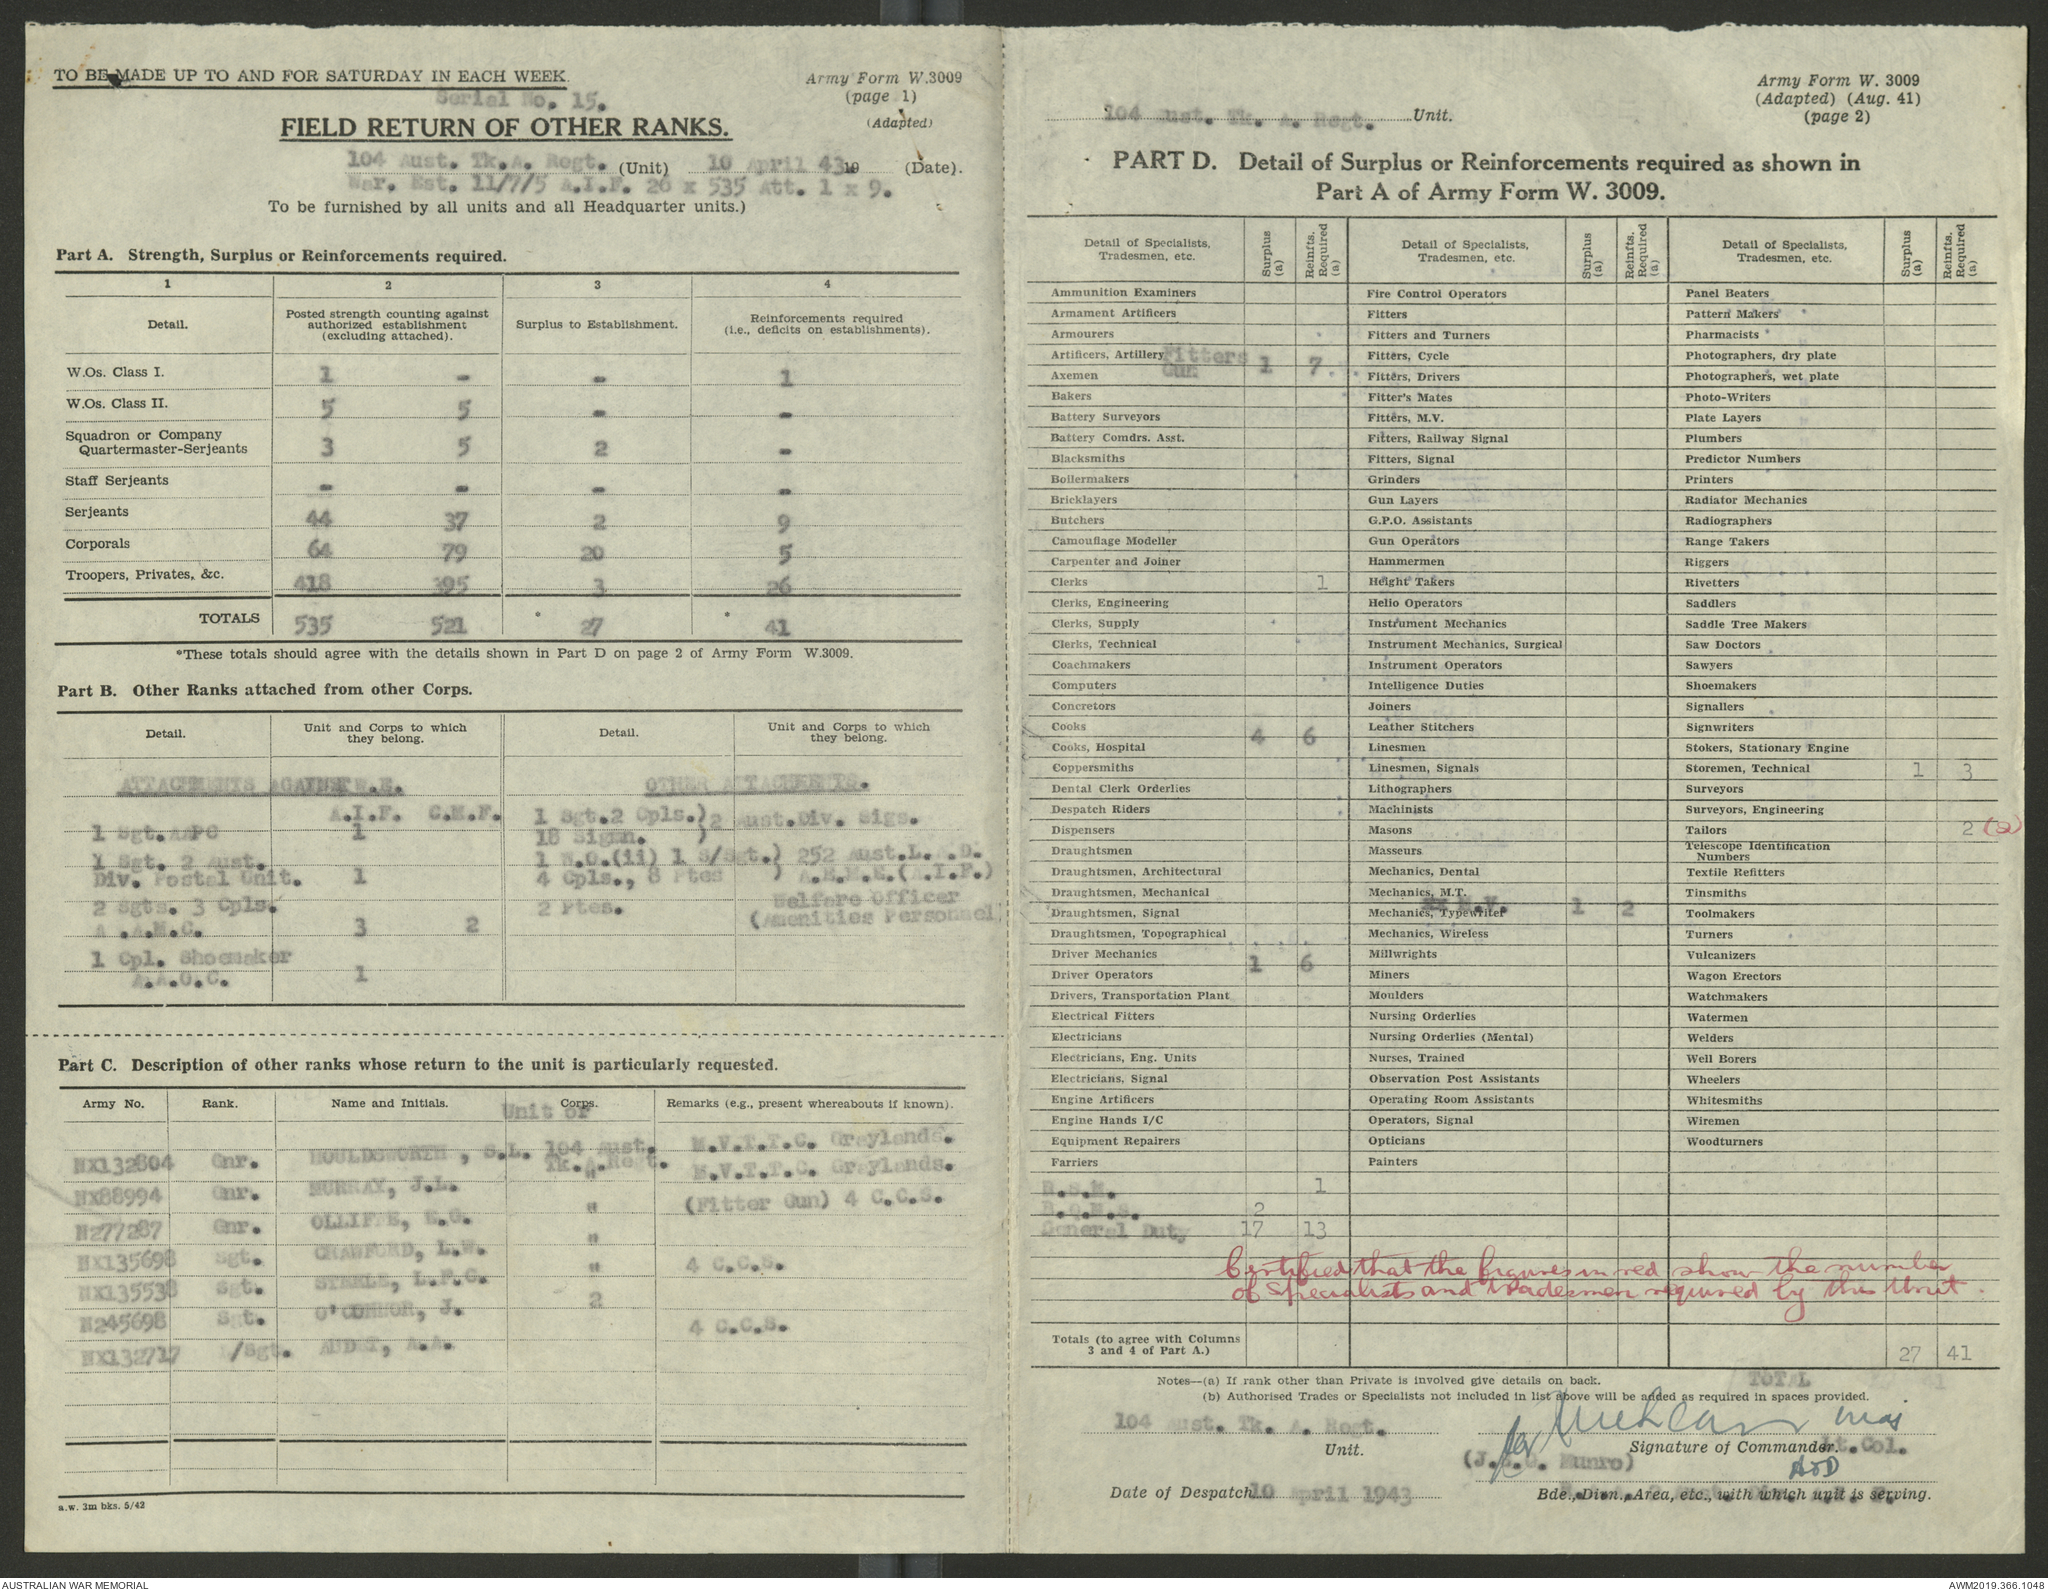 TO BE MADE UP TO AND FOR SATURDAY IN EACH WEEK.
Army Form W.3009
(page 1)
(Adapted)
Serial No. 15.
FIELD RETURN OF OTHER RANKS.
104 Aust. Tk.A. Regt. (Unit) 10 April 43 19 (Date).
War. Est. 11/7/5 A.I.F. 26 x 535 Att. 1 x 9.
To be furnished by all units and all Headquarter units.)
Part A. Strength, Surplus or Reinforcements required.
1 2 3 4
Detail. Posted strength counting against authorized establishment (excluding attached). Surplus to Establishment. Reinforcements required (i.e., deficits on establishments).
W.Os. Class I. 1 - - 1
W.Os. Class II. 5 5 - -
Squadron or Company Quartermaster-Serjeants 3 5 2 -
Staff Serjeants - - - -
Serjeants 44 37 2 9
Corporals 64 79 20 5
Troopers, Privates, &c. 418 395 3 26
TOTALS 535 521 * 27 * 41
*These totals should agree with the details shown in Part D on page 2 of Army Form W.3009.
Part B. Other Ranks attached from other Corps.
Detail. Unit and Corps to which they belong. Detail. Unit and Corps to which they belong.
ATTACHMENTS AGAINST W.E.
A.I.F. C.M.F.
1 Sgt. AAPC 1
1 Sgt. 2 Aust.
Div. Postal Unit. 1
2 Sgts. 3 Cpls.
A.A.M.C. 3 2
1 Cpl. Shoemaker
A.A.O.C. 1
OTHER ATTACHMENTS.
1 Sgt.2 Cpls.) 2 Aust.Div. Sigs.
18 Sigmn. )
1 W.O.(ii) 1 S/Sgt.) 252 Aust.L.A.D.
4 Cpls., 8 Ptes ) A.E.M.E.(A.I.F.)
2 Ptes. Welfare Officer
(Amenities Personnel
Part C. Description of other ranks whose return to the unit is particularly requested.
Army No. Rank. Name and Initials. Unit or Corps. Remarks (e.g., present whereabouts if known).
NX132804 Gnr. HOULDSWORTH, S.L. 104 Aust. Tk.A.Regt. M.V.T.T.C. Graylands.
NX88994 Gnr. MURRAY, J.L. " M.V.T.T.C. Graylands.
N277287 Gnr. OLLIFFE, E.G. " (Fitter Gun) 4 C.C.S.
NX135698 Sgt. CRAWFORD, L.W. "
NX135538 Sgt. STEELE, L.F.C. " 4 C.C.S.
N245698 Sgt. O'CONNOR, J. 2
NX132717 /Sgt. A.A. 4 C.C.S.
a.w. 3m bks. 5/42
Army Form W. 3009
(Adapted) (Aug. 41)
(page 2)
104 Aust. Tk. A. Regt. Unit.
PART D. Detail of Surplus or Reinforcements required as shown in
Part A of Army Form W. 3009.
Detail of Specialists, Tradesmen, etc. Surplus (a) Reinfts. Required (a)
Ammunition Examiners
Armament Artificers
Armourers
Artificers, Artillery Fitters
Axemen Gun 1 7
Bakers
Battery Surveyors
Battery Comdrs. Asst.
Blacksmiths
Boilermakers
Bricklayers
Butchers
Camouflage Modeller
Carpenter and Joiner
Clerks 1
Clerks, Engineering
Clerks, Supply
Clerks, Technical
Coachmakers
Computers
Concretors
Cooks 4 6
Cooks, Hospital
Coppersmiths
Dental Clerk Orderlies
Despatch Riders
Dispensers
Draughtsmen
Draughtsmen, Architectural
Draughtsmen, Mechanical
Draughtsmen, Signal
Draughtsmen, Topographical
Driver Mechanics 1 6
Driver Operators
Drivers, Transportation Plant
Electrical Fitters
Electricians
Electricians, Eng. Units
Electricians, Signal
Engine Artificers
Engine Hands I/C
Equipment Repairers
Farriers
R.S.M. 1
B.Q.M.S. 2
General Duty 17 13
Detail of Specialists, Tradesmen, etc. Surplus (a) Reinfts. Required (a)
Fire Control Operators
Fitters
Fitters and Turners
Fitters, Cycle
Fitters, Drivers
Fitter's Mates
Fitters, M.V.
Fitters, Railway Signal
Fitters, Signal
Grinders
Gun Layers
G.P.O. Assistants
Gun Operators
Hammermen
Height Takers
Helio Operators
Instrument Mechanics
Instrument Mechanics, Surgical
Instrument Operators
Intelligence Duties
Joiners
Leather Stitchers
Linesmen
Linesmen, Signals
Lithographers
Machinists
Masons
Masseurs
Mechanics, Dental
Mechanics, M.T.
M.V. 1 2
Mechanics, Typewriter
Mechanics, Wireless
Millwrights
Miners
Moulders
Nursing Orderlies
Nursing Orderlies (Mental)
Nurses, Trained
Observation Post Assistants
Operating Room Assistants
Operators, Signal
Opticians
Painters
Detail of Specialists, Tradesmen, etc. Surplus (a) Reinfts. Required (a)
Panel Beaters
Pattern Makers
Pharmacists
Photographers, dry plate
Photographers, wet plate
Photo-Writers
Plate Layers
Plumbers
Predictor Numbers
Printers
Radiator Mechanics
Radiographers
Range Takers
Riggers
Rivetters
Saddlers
Saddle Tree Makers
Saw Doctors
Sawyers
Shoemakers
Signallers
Signwriters
Stokers, Stationary Engine
Storemen, Technical 1 3
Surveyors
Surveyors, Engineering
Tailors 2 (2)
Telescope Identification Numbers
Textile Refitters
Tinsmiths
Toolmakers
Turners
Vulcanizers
Wagon Erectors
Watchmakers
Watermen
Welders
Well Borers
Wheelers
Whitesmiths
Wiremen
Woodturners
Certified that the figures in red show the number
of Specialists and tradesmen required by this Unit.
Totals (to agree with Columns 3 and 4 of Part A.) 27 41
TOTAL
Notes—(a) If rank other than Private is involved give details on back.
(b) Authorised Trades or Specialists not included in list above will be added as required in spaces provided.
104 Aust. Tk. A. Regt.
Unit.
for Maj
Signature of Commander. Lt.Col.
Munro)
Date of Despatch 10 April 1943
Bde., Divn., Area, etc., with which unit is serving.
AUSTRALIAN WAR MEMORIAL
AWM2019.366.1048